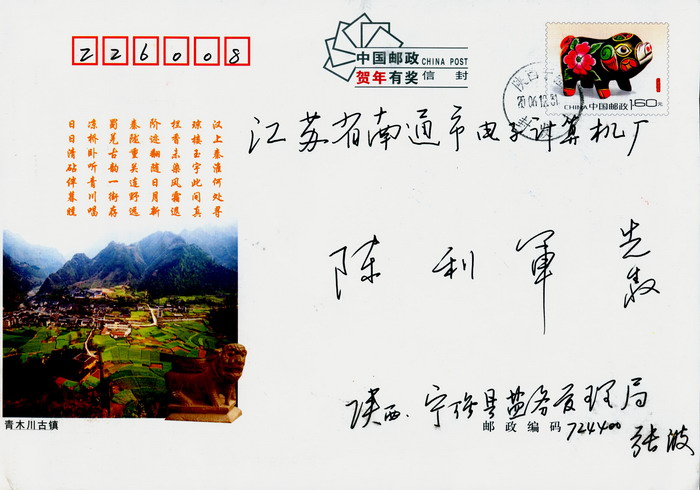 226008
中国邮政 CHINA POST
贺年有奖信封
CHINA 中国邮政 1.60元
2006.12.31
江苏省南通市电子计算机厂
汉上秦淮何处寻
琼楼玉宇此间真
香未染风霜退
阶迹翻随日月新
秦陇重关连野远
蜀羌古韵一街存
凉桥卧听青川唱
日日清砧伴暮
陈利军 先
青木川古镇
陕西.宁强县盐务管理局
邮政编码 724400
张波